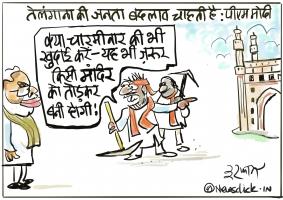 तेलंगाना की जनता बदलाव चाहती है: पीएम मोदी
क्या चारमीनार की भी
खुदाई करें-यह भी ज़रूर
किसी मंदिर
को तोड़कर
बनी होगी!
इरफ़ान
@Newsclick.in